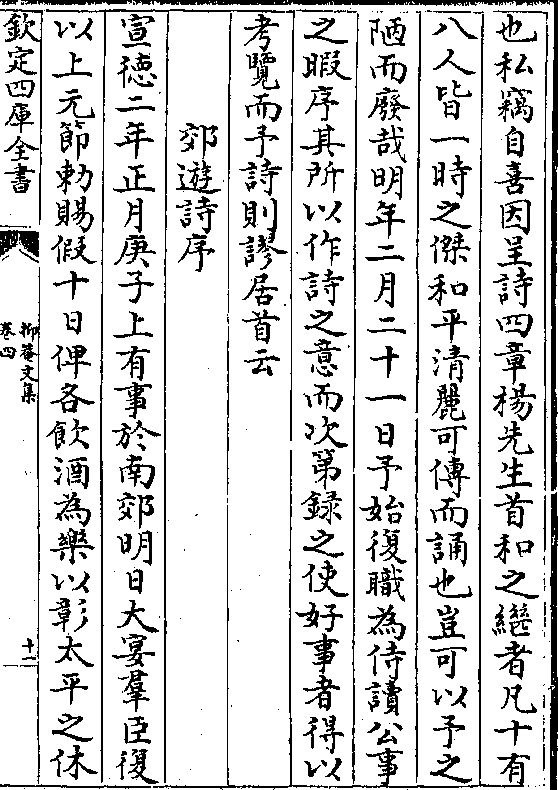 也私竊自喜因呈詩四章楊先生首和之繼者凡十有
八人皆一時之傑和平清麗可傳而誦也豈可以予之
陋而廢哉明年二月二十一日予始復職為侍讀公事
之暇序其所以作詩之意而次第録之使好事者得以
考覽而予詩則謬居首云
郊遊詩序
宣德二年正月庚子上有事於南郊明日大宴羣臣復
以上元節勅賜假十日俾各飲酒為樂以彰太平之休
欽定四庫全書
抑菴文集
卷四
十一